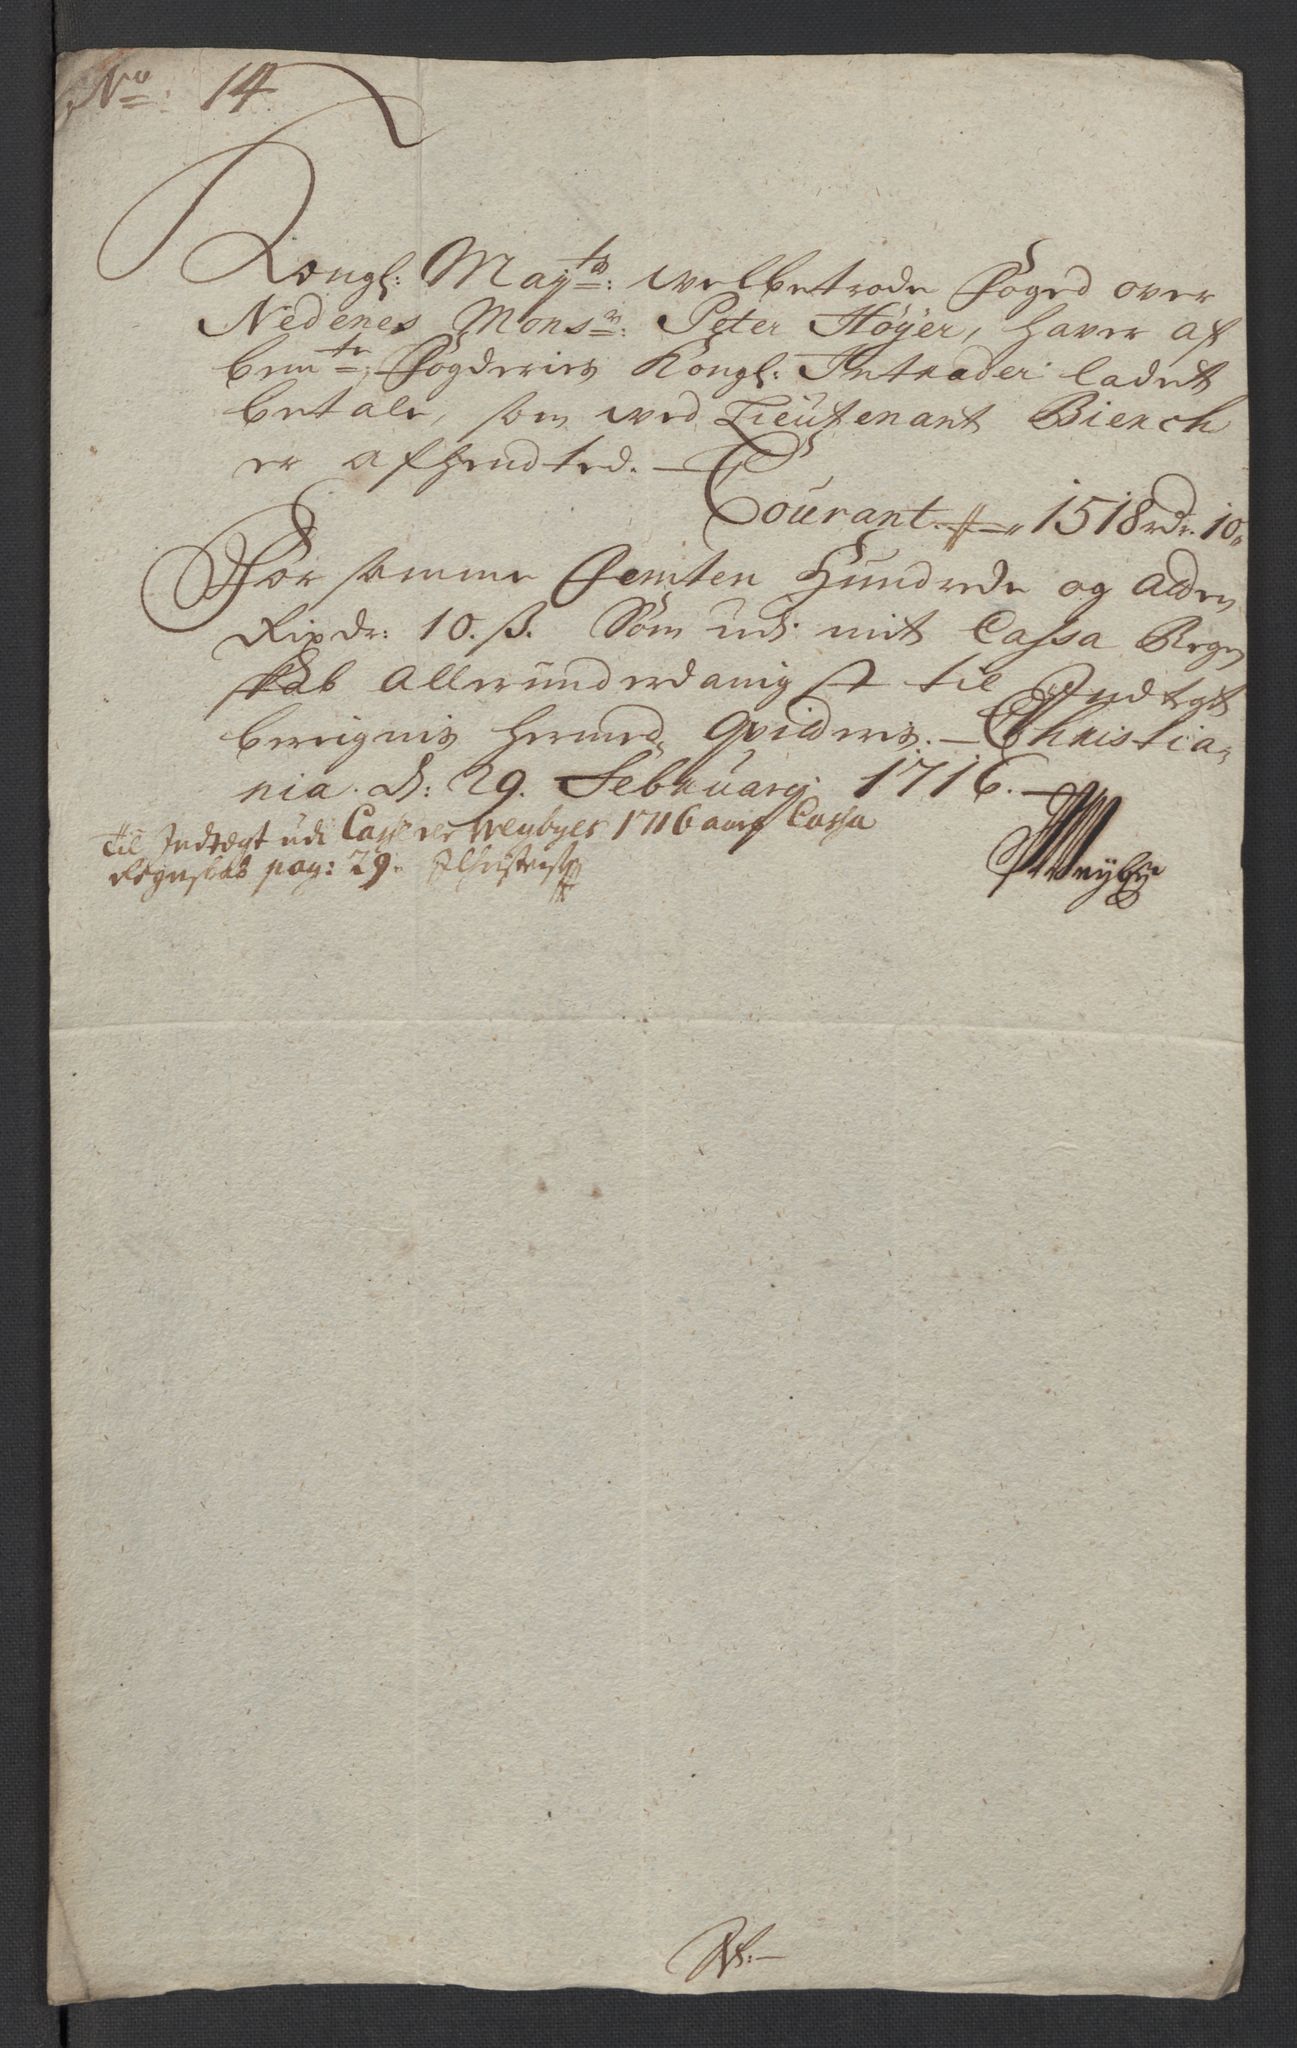 No: 14
Kongl: Mayts: welbetrode Foged over
Nedenes Monsr: Peter Höyer, haver af
bemte: Fogderies Kongl: Intrader ladet
betale, som ved Lieutenant Bierch
er afhendted. —
Courant — 1518 rdr. 10
For samme Femten Hundrede og Atten
Rixdr: 10. ß. Som udi mit Cassa Regen
skab Allerunderdanigst til Indtegt
bereignis hermed Qvideris. — Christia-
nia. d: 29. Februarij. 1716. —
Weybye
til Indtægt udi Casserer Weybyes 1716 aars Cassa
Regnskab pag: 29.